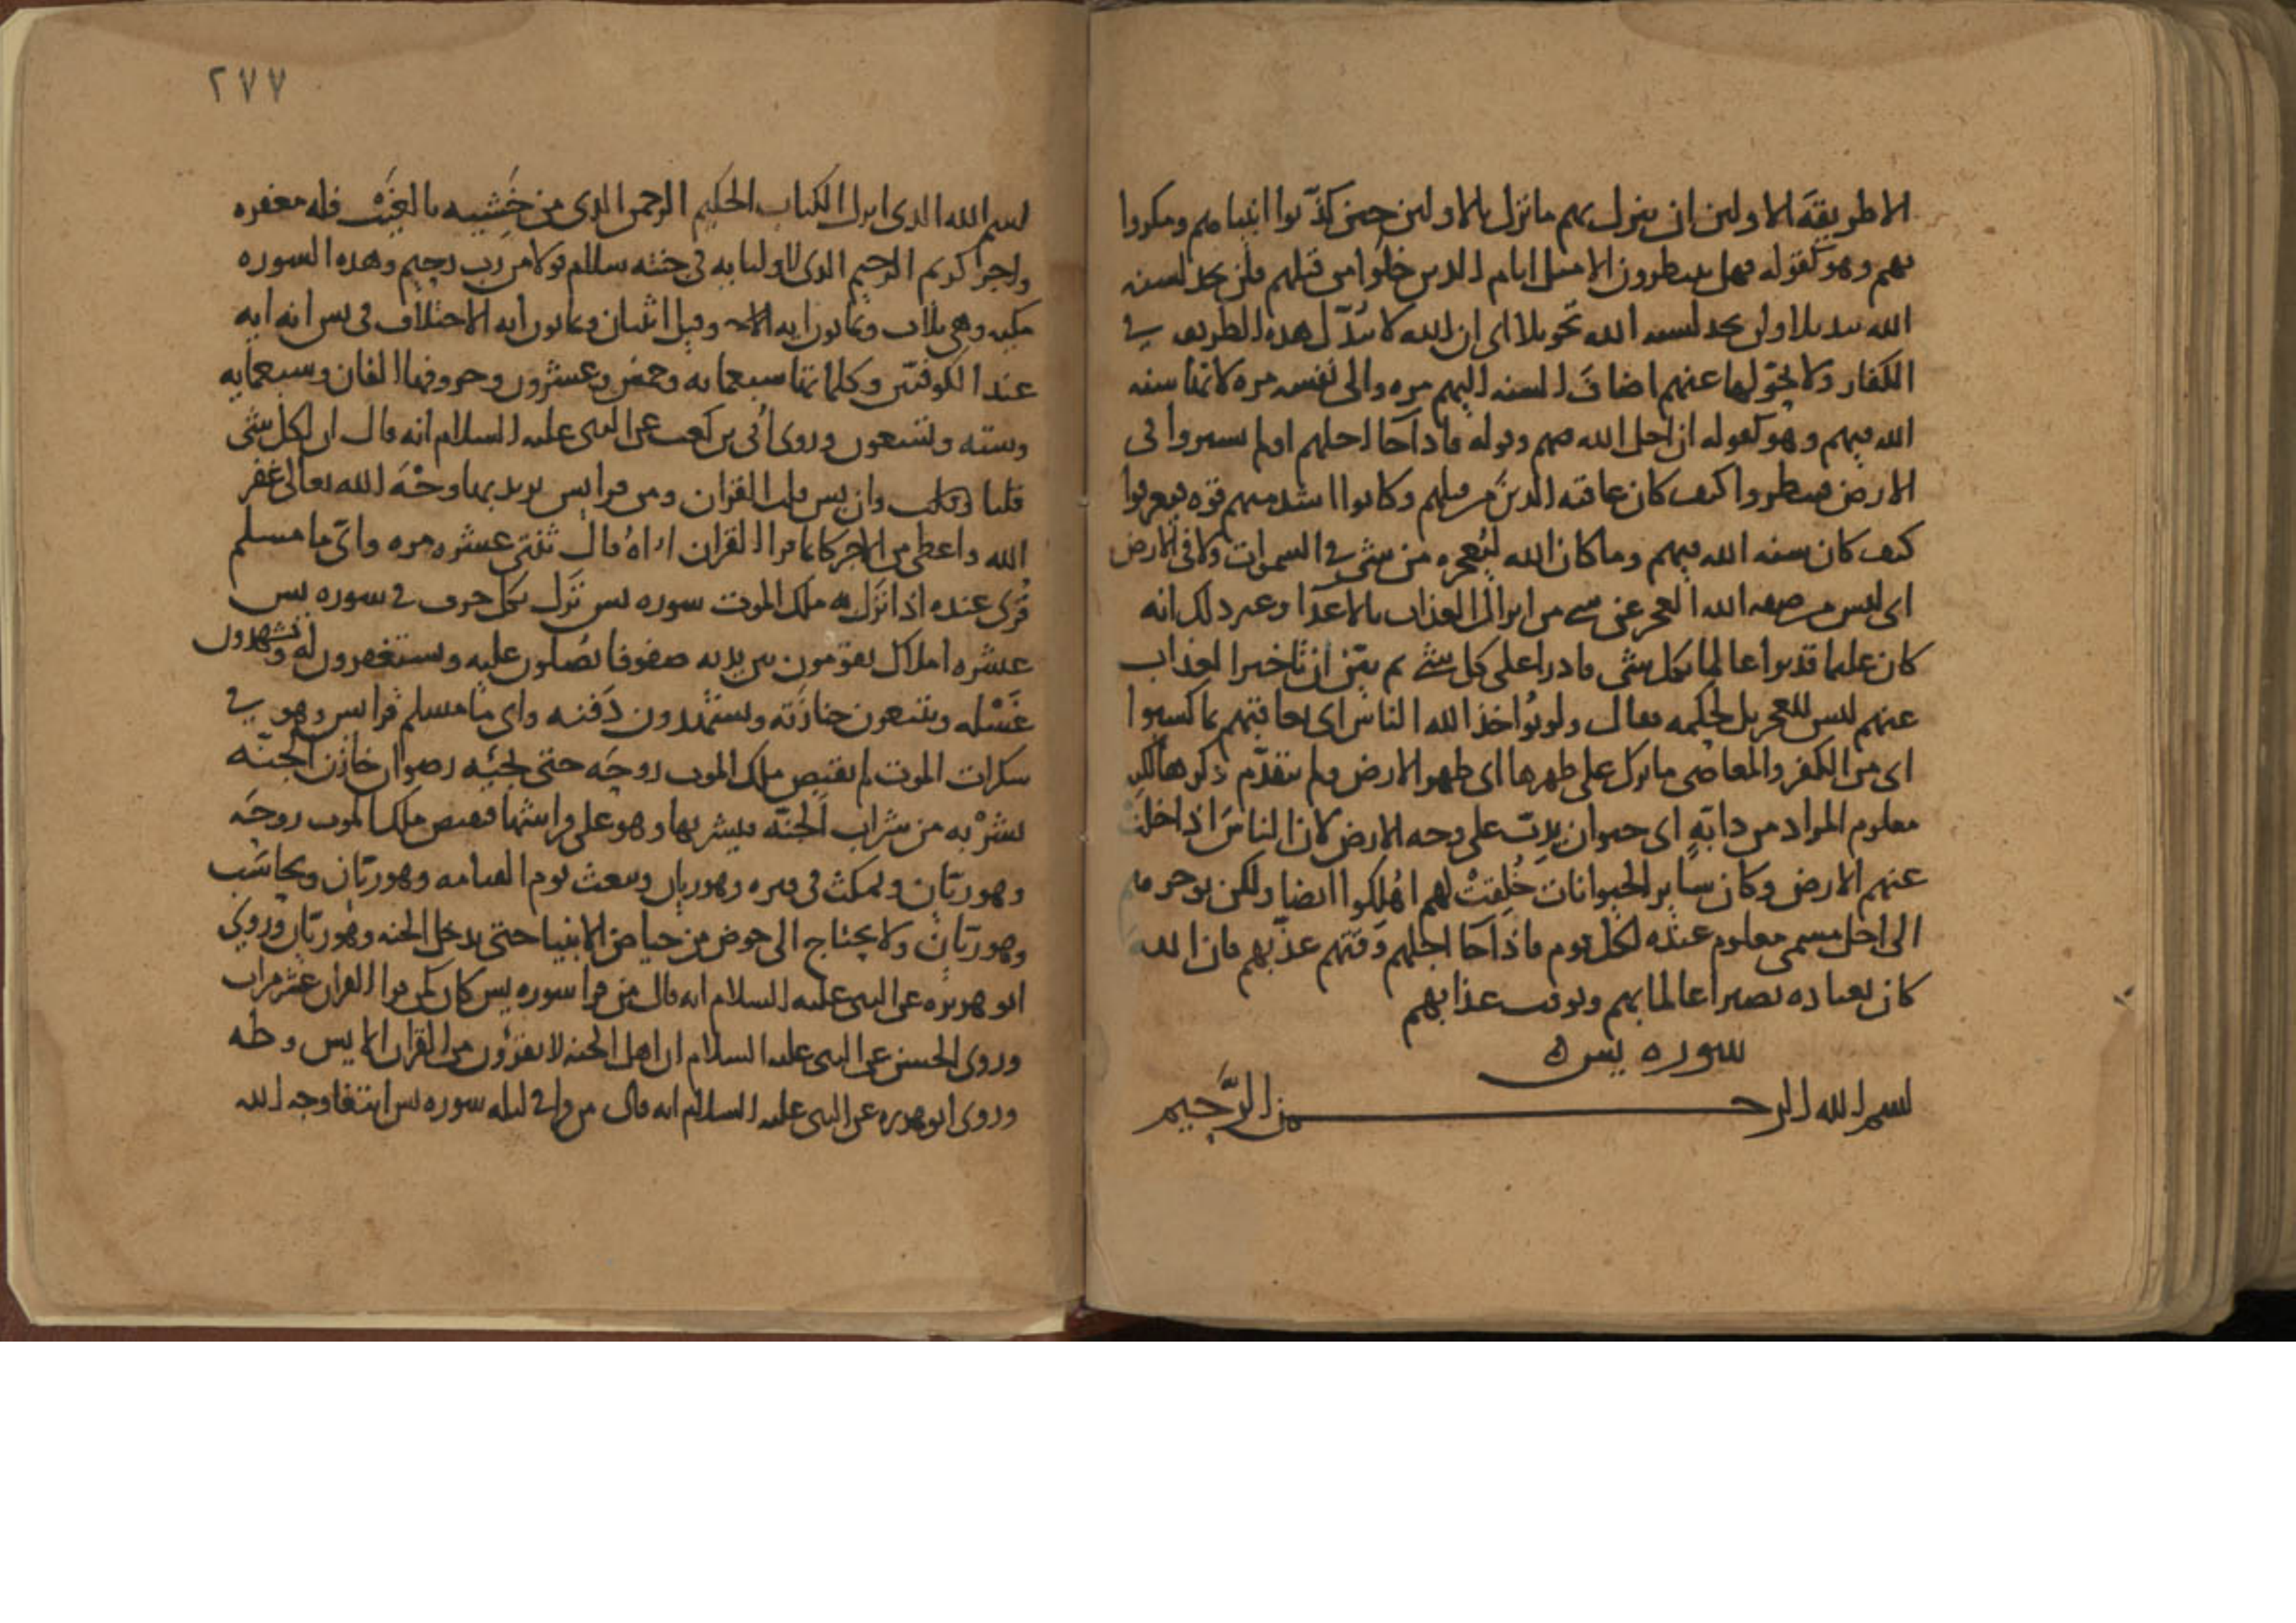 الا طريقة الاولين ان ينزل بهم ما نزل بالاولين حين كذّبوا انبيامهم ومكروا
بهم وهو كقوله فهل ينتظرون الا مثل ايام الذين خلوا من قبلهم فلن تجد لسنه
الله تبديلا ولن تجد لسنه الله تحويلا اى ان الله لا يبدّل هذه الطريقه في
الكفار ولا يحوّلها عنهم اضافَ السنه اليهم مره والى نفسه مره لانها سنه
الله فيهم وهو كقوله ان اجل الله وقوله فاذا جا اجلهم اولم يسيروا فى
الارض فينظروا كيف كان عاقبه الذين من قبلهم وكانوا اشد منهم قوّه فيعرفوا
كيف كان سنه الله فيهم وما كان الله ليُعجزه من شي في السموات ولا فى الارض
اى ليس من صفه الله العجز عن شي من انزال العذاب بالاعدا وغير ذلك انه
كان عليما قديرا عالما بكل شى قادرا على كل شي ثم بيّن ان تاخير العذاب
عنهم ليس للعجز بل لحكمه فقال ولو يُواخذ الله الناس اى يعاقبهم بما كسبوا
اى من الكفر والمعاصى ما ترك على ظهرها اى ظهر الارض ولم يتقدّم ذكرها لكن
معلوم المراد من دابّهٍ اى حيوان يدِبّ على وجه الارض لان الناسَ اذا خلت
عنهم الارض وكان ساير الحيوانات خُلِقتْ لهم اهْلكوا ايضا ولكن يوخرهم
الى اجل مسمى معلوم عنده لكل قوم فاذا جا اجلهم وقتهم عذّبهم فان الله
كان بعباده بصيرا عالما بهم وبوقت عذابهم
سوره يس
بسم الله الرحمن الرَّحيم
٢٧٧
بسم الله الذى انزل الكتاب الحكيم الرحمن الذى من خَشِيه بالغيْب فله مغفره
واجر كريم الرحيم الذى لاوليايه فى جنته سلام قولا من رب رحيم وهذه السوره
مكيه وهى ثلاث وثمانون ايه وقيل اثنتان وثمانون ايه الاختلاف فى يس انه ايه
عند الكوفيّين وكلماتها سبعمايه وخمس وعشرون وحروفها الفان وسبعمايه
وسته وتسعون وروى اُبى بن كعب عن النبى عليه السلام انه قال ان لكل شى
قلبا وان يس قلب القران ومن قرا يس يريد بها وجْهَ الله تعالى غفر
الله واعطى من الاجر كانما قرا القران ثنتى عشره مره وايّما مسلم
قُرئ عنده اذا نَزَل به ملك الموت سوره يس نزل بكل حرف في سوره يس
عشره املاك يقومون بين يديه صفوفا يُصلون عليه ويستغفرون له ويَشهدون
غَسْله ويتبعون جنازته ويشهدون دَفنه واى ما مسلم قرا يس وهو في
سكرات الموت لم يقبض ملك الموت روحَه حتى يجيئه رضوان خازن الجنّه
بشرْبه من شراب الجنّه فيشربها وهو على فراشها فيقبض ملك الموت روحَه
وهو ريّان ويمكث فى قبره وهو ريان ويبعث يوم القيامه وهو ريّان ويحاسَب
وهو ريّان ولا يحتاج الى حوض من حياض الانبيا حتى يدخل الجنه وهو ريّان وروي
ابو هريره عن النبى عليه السلام انه قال من قرا سوره يس كان كمن قرا القران عشر مرات
وروى الحسن عن النبى عليه السلام ان اهل الجنه لا يقرؤن من القران الا يس وطه
وروى ابو هريره عن النبى عليه السلام انه قال من قرا في ليله سوره يس ابتغا وجه الله